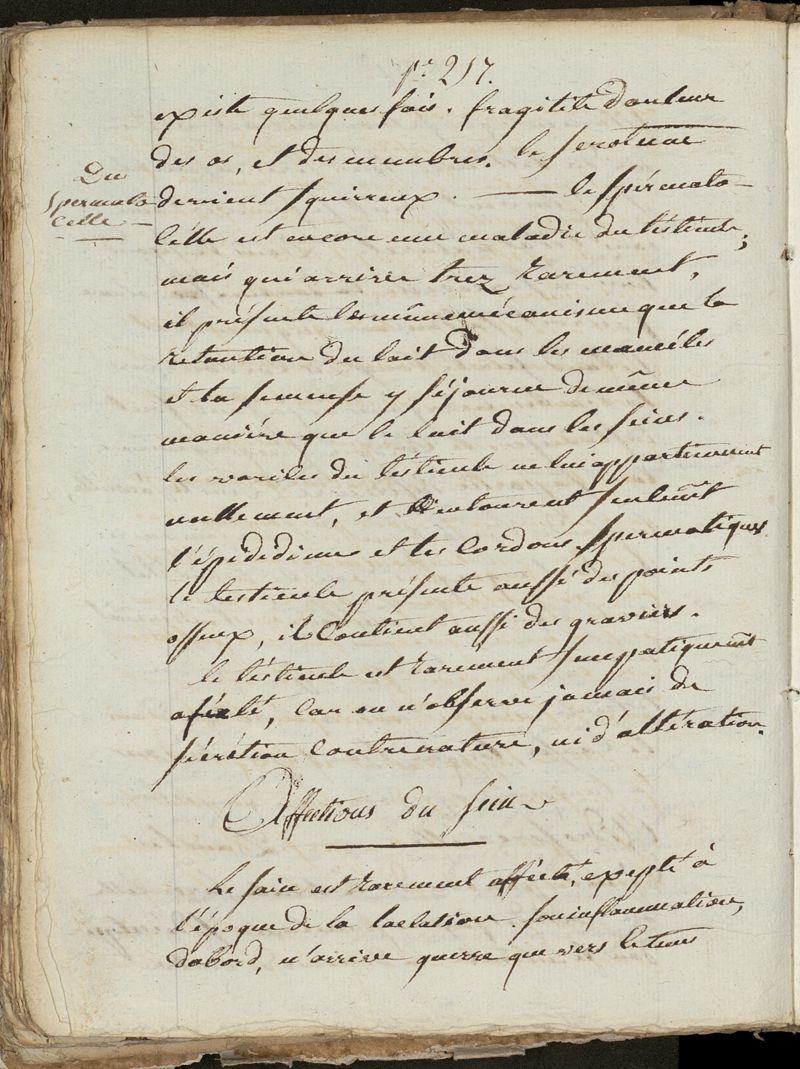 pe. 217.
existe quelques fois. fragilité douleur
des os, et des membres. le scrotum
Du
spermato
celle
devient squirreux. — le spérmato-
célle est encore une maladie du tésticule,
mais qui arrive trez rarement,
il présente le même mécanisme que la
retantion du lait dans les maméles
et la semense y séjourne de même
maniére que le lait dans les seins.
les variles du tésticule ne lui appartiennent
nullement, et entourent seulemt
l'épididime et les cordons spermatiques
le testicule présente aussi des points
osseux, il contient aussi des graviers.
le tésticule est rarement simpatiquemt
afécté, car on n'observe jamais de
sécrétion contrenature, ni d'altération.
Affections du sein
Le sain est rarement affecté, exepté à
l'époque de la lactation. son inflammation,
dabord, n'arrive guerre que vers le tems